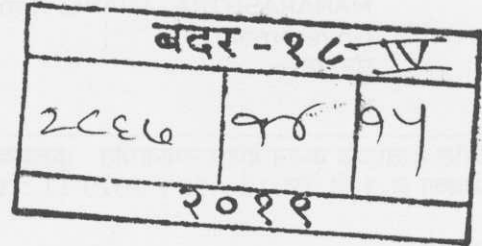 बदर - १८ IV
२८६७ १५
२०११